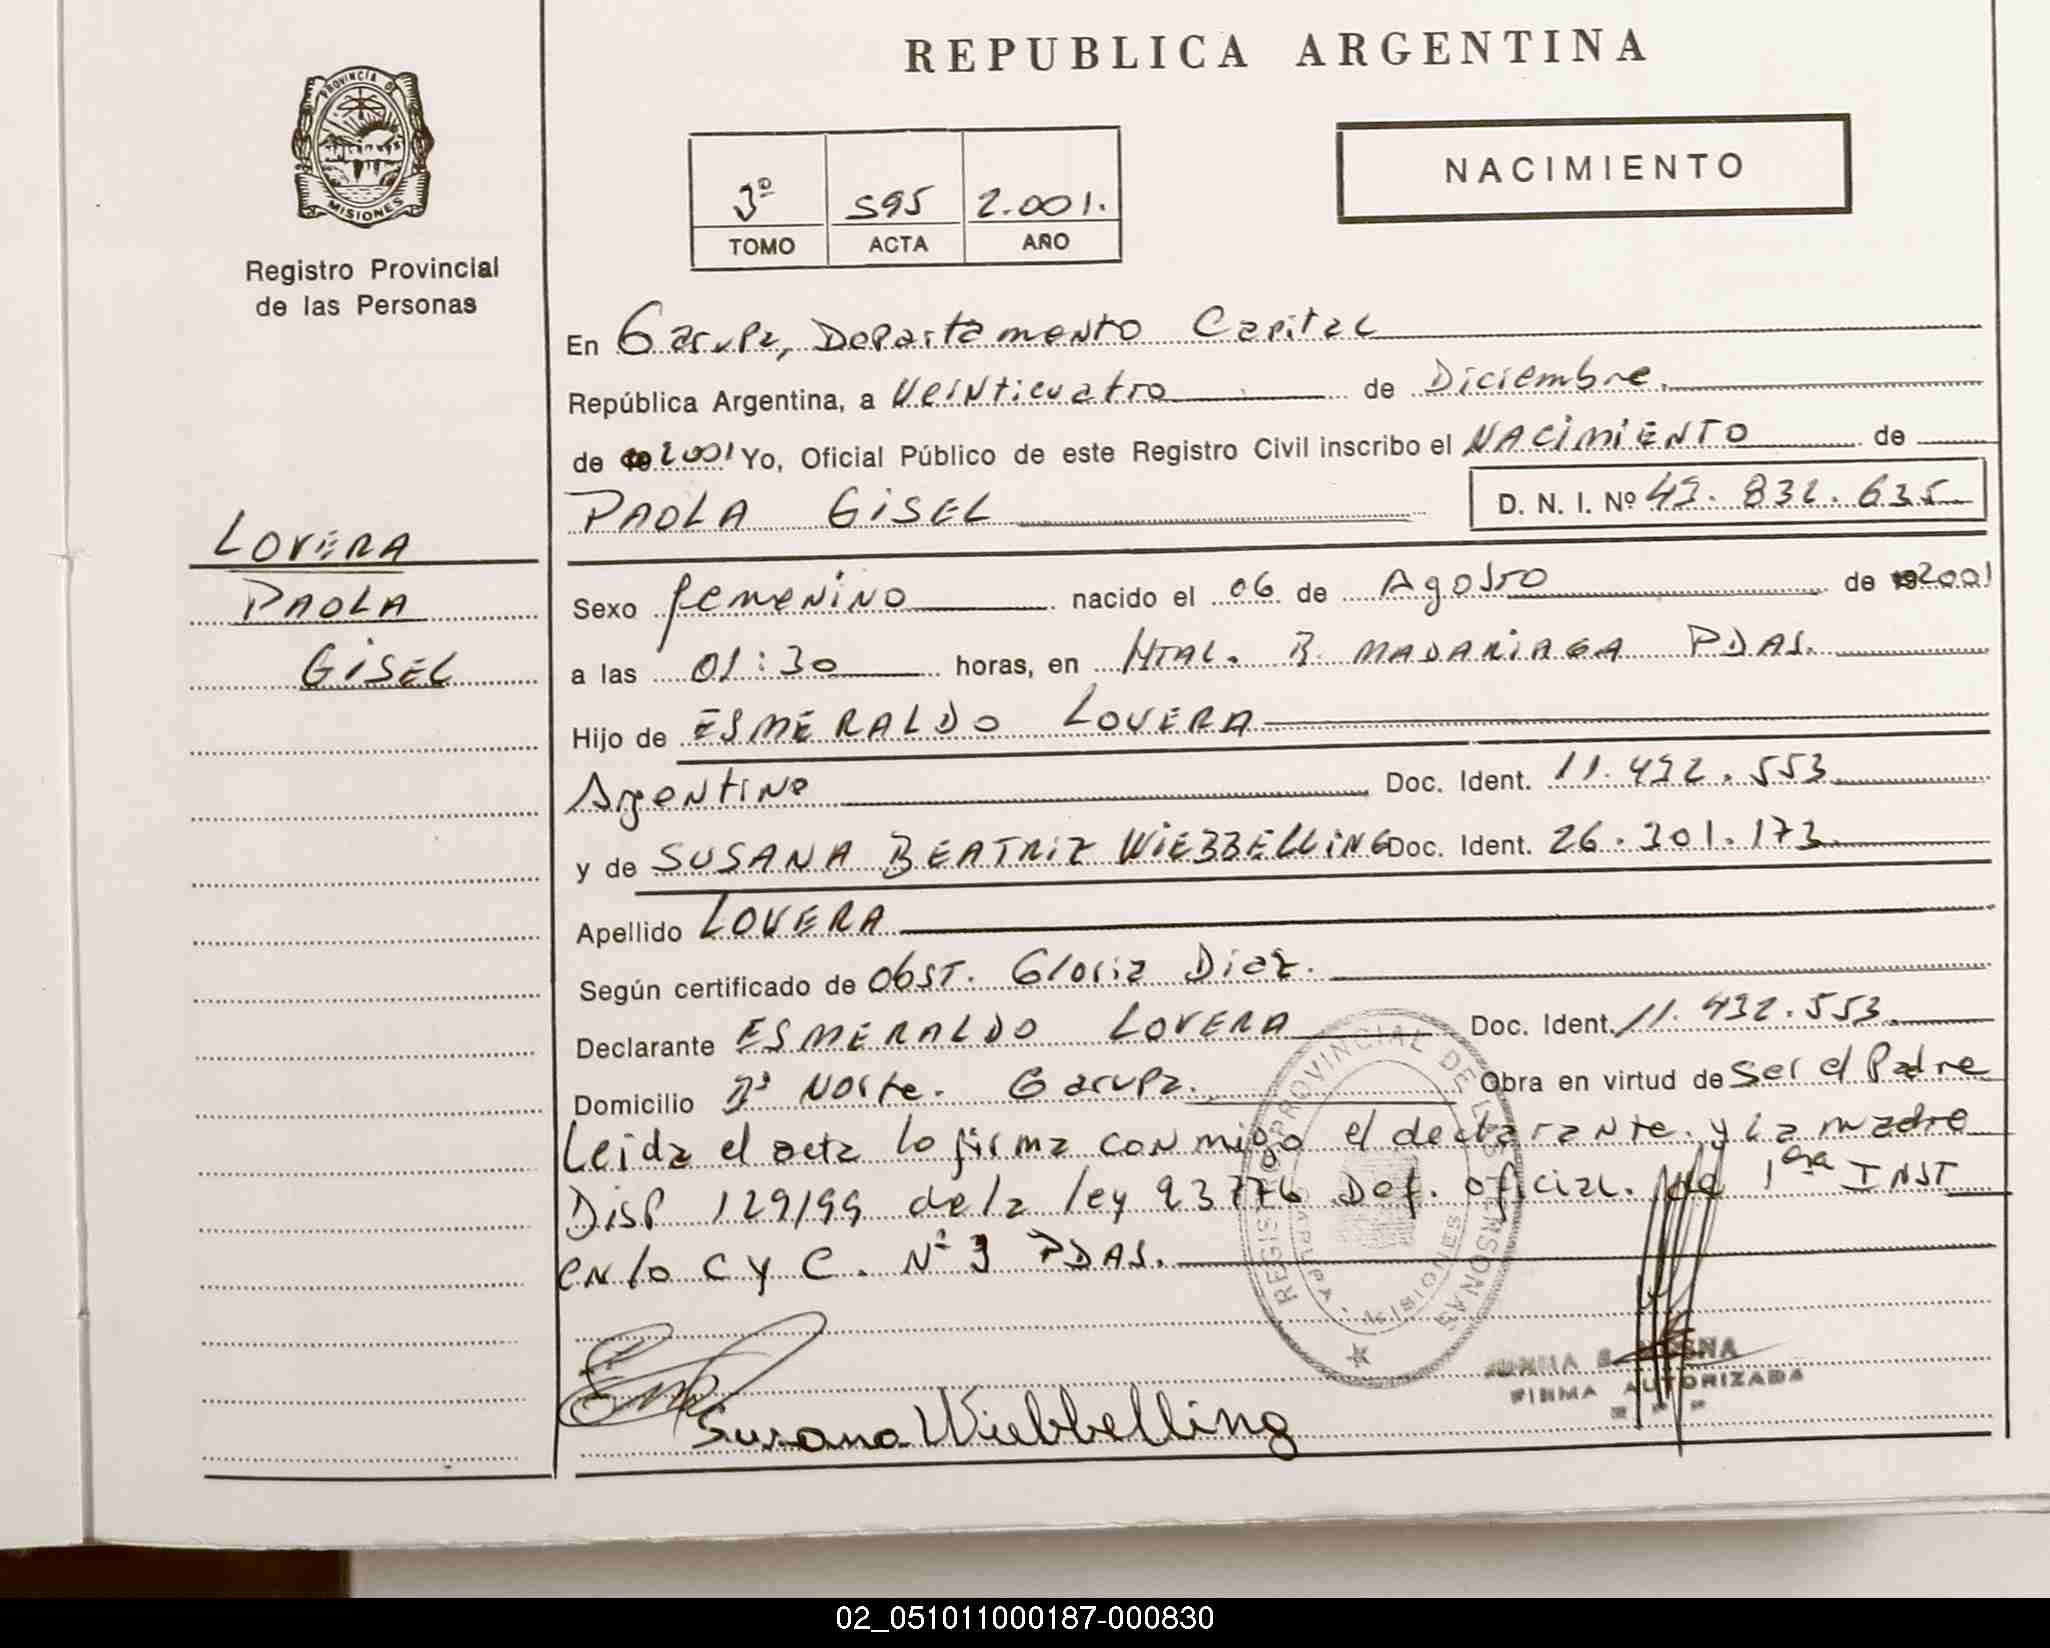 REPUBLICA ARGENTINA
PROVINCIA DE
MISIONES
Registro Provincial
de las Personas
NACIMIENTO
3º 595 2.001.
TOMO ACTA AÑO
En Garupa, Departamento Capital
República Argentina, a Veinticuatro de Diciembre.
de 2001 Yo, Oficial Público de este Registro Civil inscribo el NACIMIENTO de
PAOLA GISEL D. N. I. Nº 43. 832. 635
LOVERA
PAOLA
GISEL
Sexo femenino nacido el 06 de Agosto de 192001
a las 01:30 horas, en HTAL. R. MADARIAGA PDAS.
Hijo de ESMERALDO LOVERA
Argentino Doc. Ident. 11.432.553
y de SUSANA BEATRIZ WIEBBELLING Doc. Ident. 26.301.173
Apellido LOVERA
Según certificado de Obst. Gloria Diaz.
Declarante ESMERALDO LOVERA Doc. Ident. 11.432.553.
Domicilio Bº Norte. Garupa. Obra en virtud de ser el Padre
Leida el acta lo firma conmigo el declarante y la madre
Disp 129/99 de la ley 23776 Def. oficial. de 1era INST
en lo C y C. Nº 3 PDAS.
REGISTRO PROVINCIAL DE LAS PERSONAS
GARUPA - MISIONES
Susana Wiebbelling
FIRMA AUTORIZADA
02_051011000187-000830